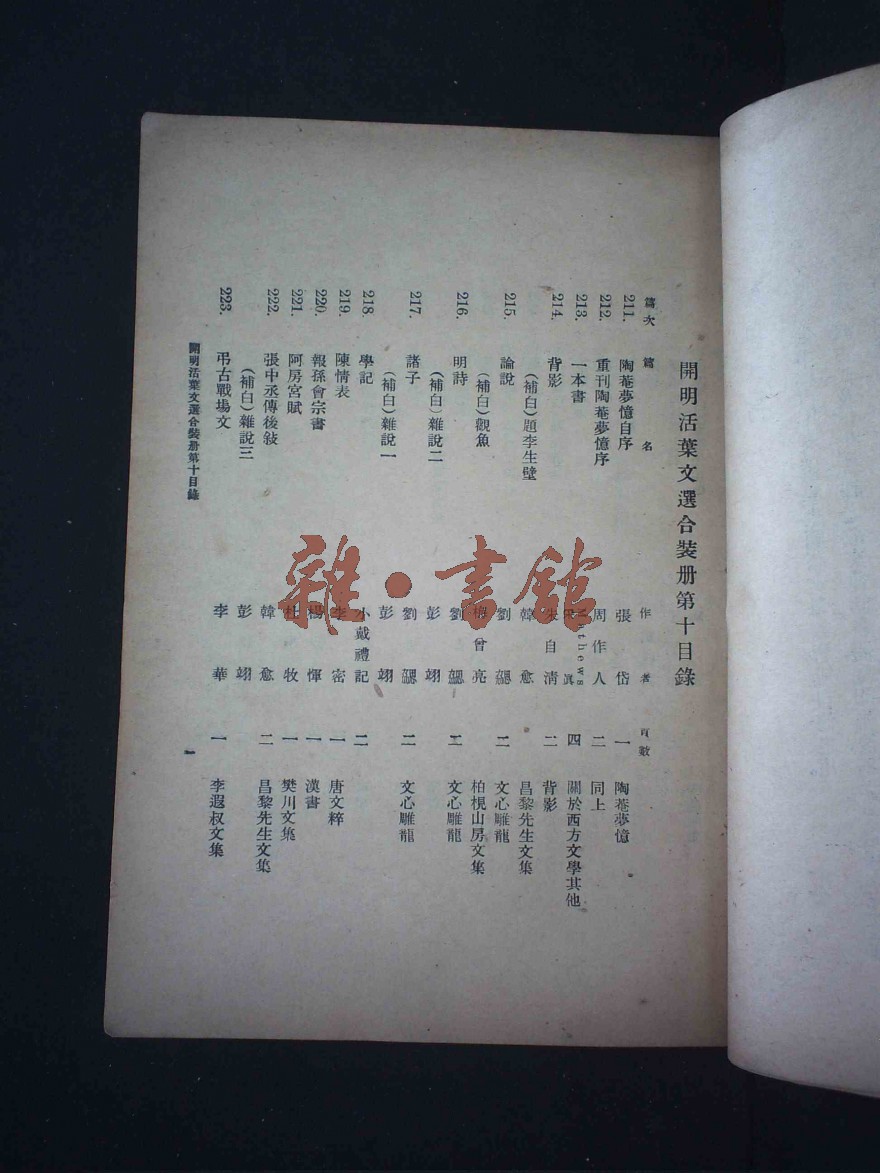 開明活葉文選合裝册第十目錄
篇次 篇名 作者 頁數
211. 陶菴夢憶自序 張岱 一 陶菴夢憶
212. 重刊陶菴夢憶序 周作人 二 同上
213. 一本書 Mathews 四 關於西方文學其他
214. 背影 朱自清 二 背影
(補白)題李生壁 韓愈 昌黎先生文集
215. 論說 劉勰 二 文心雕龍
(補白)觀魚 梅曾亮 柏梘山房文集
216. 明詩 劉勰 二 文心雕龍
(補白)雜說二 彭翊
217. 諸子 劉勰 二 文心雕龍
(補白)雜說一 彭翊
218. 學記 小戴禮記 二
219. 陳情表 李密 一 唐文粹
220. 報孫會宗書 楊惲 一 漢書
221. 阿房宮賦 杜牧 一 樊川文集
222. 張中丞傳後敍 韓愈 二 昌黎先生文集
(補白)雜說三 彭翊
223. 弔古戰場文 李華 一 李遐叔文集
開明活葉文選合裝册第十目錄
一
雜·書館